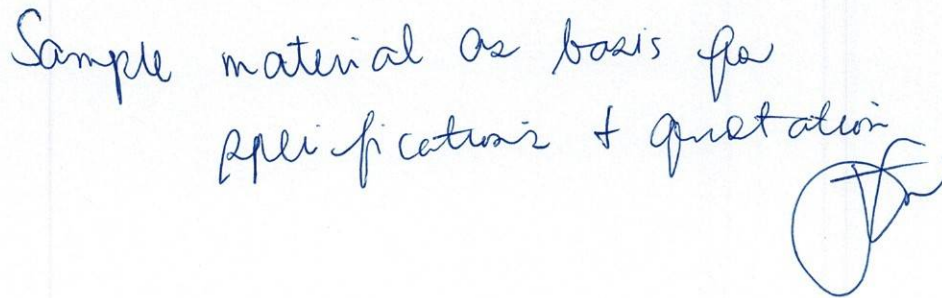 Sample material as basis for
specifications + quotation